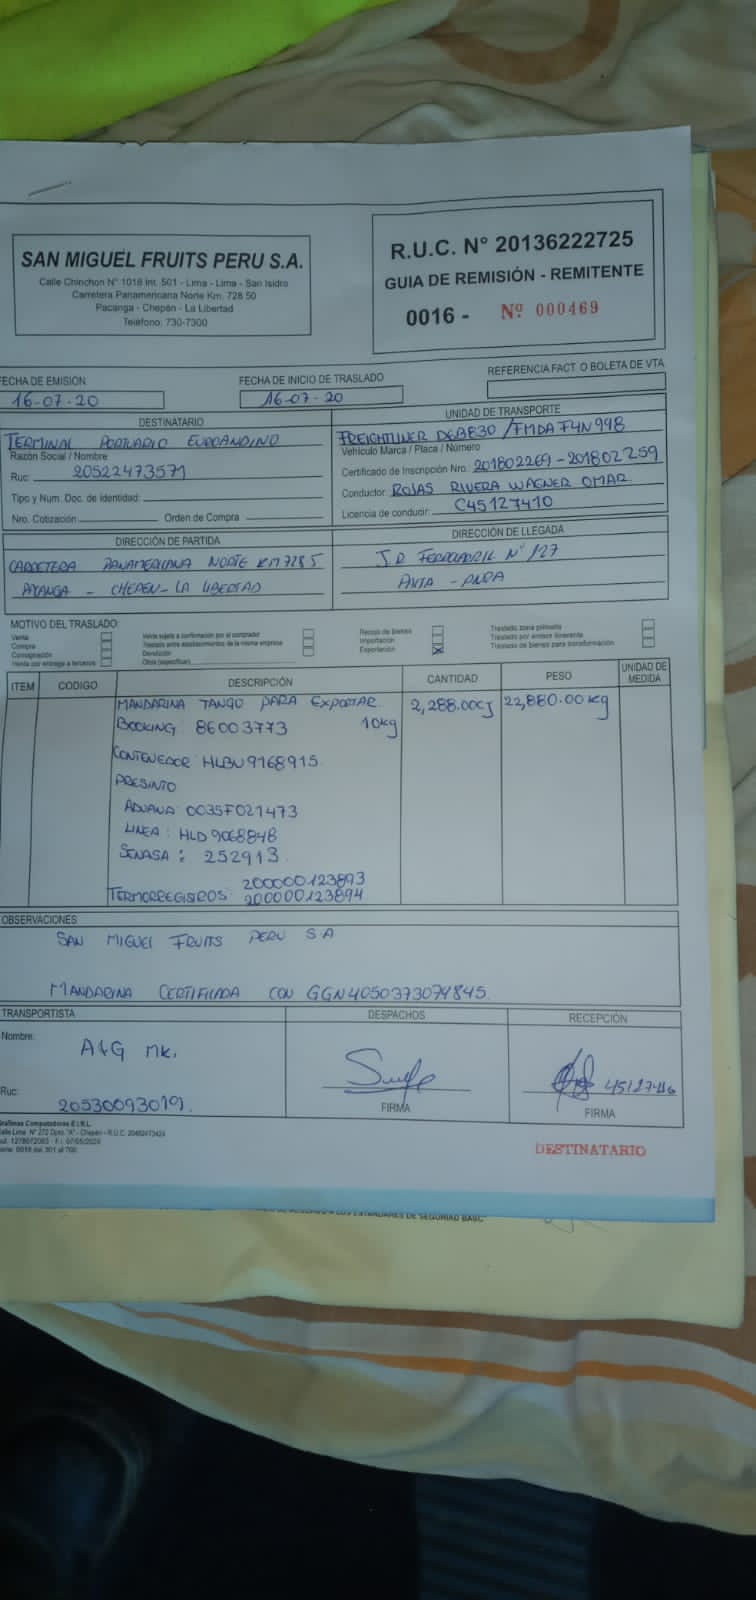 SAN MIGUEL FRUITS PERU S.A.
Calle Chinchon N° 1018 Int. 501 - Lima - Lima - San Isidro
Carretera Panamericana Norte Km. 728 50
Pacanga - Chepén - La Libertad
Teléfono: 730-7300
R.U.C. N° 20136222725
GUIA DE REMISIÓN - REMITENTE
0016 - Nº 000469
FECHA DE EMISIÓN
16-07-20
FECHA DE INICIO DE TRASLADO
16-07-20
REFERENCIA FACT. O BOLETA DE VTA
DESTINATARIO
TERMINAL PORTUARIO EUROANDINO
Razón Social / Nombre
Ruc: 20522473571
Tipo y Num. Doc. de Identidad:
Nro. Cotización Orden de Compra
UNIDAD DE TRANSPORTE
FREIGHTLINER D6B830 /FMDA F4N998
Vehículo Marca / Placa / Número
Certificado de Inscripción Nro. 201802269-201802259
Conductor: ROJAS RIVERA WAGNER OMAR
Licencia de conducir: C45127410
DIRECCIÓN DE PARTIDA
CARRETERA PANAMERICANA NORTE KM 728 5
PACANGA - CHEPEN - LA LIBERTAD
DIRECCIÓN DE LLEGADA
J.R FERROCARRIL N° 127
MOTIVO DEL TRASLADO:
Venta
Compra
Consignación
Venta por entrega a terceros
Venta sujeta a confirmación por el comprador
Traslado entre establecimientos de la misma empresa
Devolución
Otros (especificar)
Recojo de bienes
Importación
Exportación
Traslado zona primaria
Traslado por emisor itinerante
Traslado de bienes para transformación
ITEM CODIGO DESCRIPCIÓN CANTIDAD PESO UNIDAD DE MEDIDA
MANDARINA TANGO PARA EXPORTAR 2,288.00cj 22,880.00 kg
BOOKING: 86003773 10kg
CONTENEDOR: HLBU9168915
PRESINTO
ADUANA: 0035F021473
LINEA: HLD9068848
SENASA: 252913
200000123893
TERMORREGISTROS: 200000123894
OBSERVACIONES
SAN MIGUEL FRUITS PERU S A
MANDARINA CERTIFICADA CON GGN4050373074845
TRANSPORTISTA
Nombre: A&G MK.
Ruc: 20530093019.
DESPACHOS
FIRMA
RECEPCIÓN
45127416
FIRMA
Graficas Computadoras E.I.R.L.
DESTINATARIO
ESTANDARES DE SEGURIDAD BASC